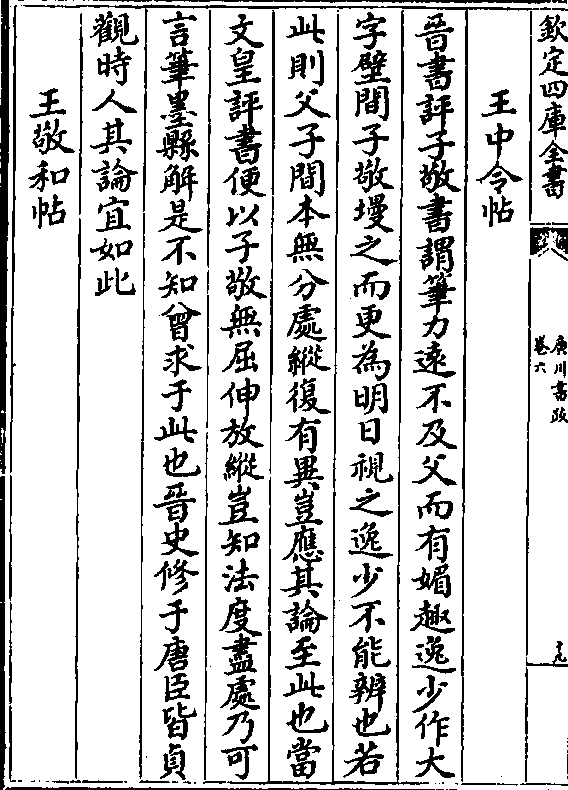 欽定四庫全書
廣川書跋
卷六
十九
王中令帖
晉書評子敬書謂筆力逺不及父而有媚趣逸少作大
字壁間子敬墁之而更為明日視之逸少不能辨也若
此則父子間本無分處縱復有異豈應其論至此也當
文皇評書便以子敬無屈伸放縱豈知法度盡處乃可
言筆墨縣解是不知曾求于此也晉史修于唐臣皆貞
觀時人其論宜如此
王敬和帖